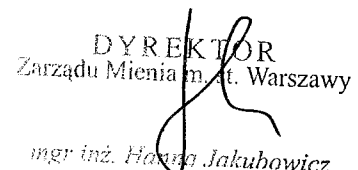 DYREKTOR
Zarządu Mienia m. st. Warszawy
mgr inż. Hanna Jakubowicz